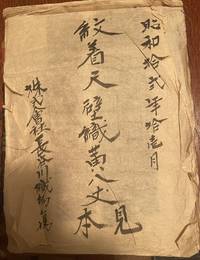 昭和拾弐年拾壱月
紋着尺壁織黄八丈見本
株式會社長谷川織物工場